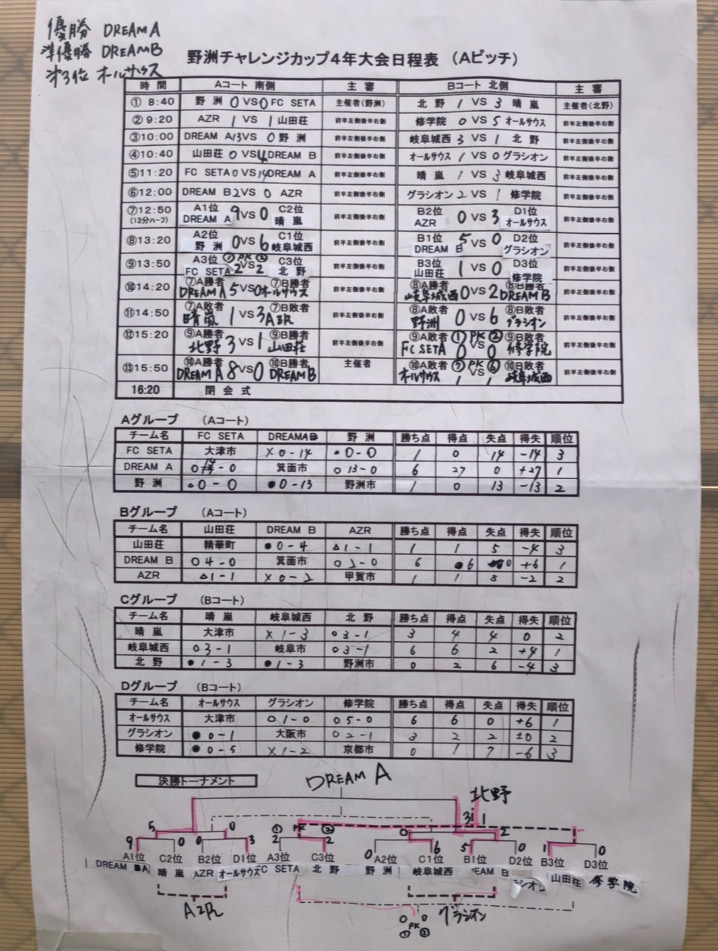 優勝 DREAM A
準優勝 DREAM B
第3位 オールサウス
野洲チャレンジカップ4年大会日程表 （Aピッチ）
時間 Aコート 南側 主審 Bコート 北側 主審
① 8:40 野洲 0 VS 0 FC SETA 主催者(野洲) 北野 1 VS 3 晴嵐 主催者(北野)
② 9:20 AZR 1 VS 1 山田荘 前半左側後半右側 修学院 0 VS 5 オールサウス 前半左側後半右側
③10:00 DREAM A 13 VS 0 野洲 前半左側後半右側 岐阜城西 3 VS 1 北野 前半左側後半右側
④10:40 山田荘 0 VS 4 DREAM B 前半左側後半右側 オールサウス 1 VS 0 グラシオン 前半左側後半右側
⑤11:20 FC SETA 0 VS 14 DREAM A 前半左側後半右側 晴嵐 1 VS 3 岐阜城西 前半左側後半右側
⑥12:00 DREAM B 2 VS 0 AZR 前半左側後半右側 グラシオン 2 VS 1 修学院 前半左側後半右側
⑦12:50 (13分ハーフ) A1位 DREAM A 9 VS 0 C2位 晴嵐 前半左側後半右側 B2位 AZR 0 VS 3 D1位 オールサウス 前半左側後半右側
⑧13:20 A2位 野洲 0 VS 6 C1位 岐阜城西 前半左側後半右側 B1位 DREAM B 5 VS 0 D2位 グラシオン 前半左側後半右側
⑨13:50 A3位 FC SETA ① PK ② 2 VS 2 C3位 北野 前半左側後半右側 B3位 山田荘 1 VS 0 D3位 修学院 前半左側後半右側
⑩14:20 ⑦A勝者 DREAM A 5 VS 0 ⑦B勝者 オールサウス 前半左側後半右側 ⑧A勝者 岐阜城西 0 VS 2 ⑧B勝者 DREAM B 前半左側後半右側
⑪14:50 ⑦A敗者 晴嵐 1 VS 3 ⑦B敗者 AZR 前半左側後半右側 ⑧A敗者 野洲 0 VS 6 ⑧B敗者 グラシオン 前半左側後半右側
⑫15:20 ⑨A勝者 北野 3 VS 1 ⑨B勝者 山田荘 前半左側後半右側 ⑨A敗者 FC SETA ① PK ② 0 VS 0 ⑨B敗者 修学院 前半左側後半右側
⑬15:50 ⑩A勝者 DREAM A 8 VS 0 ⑩B勝者 DREAM B 主催者 ⑩A敗者 オールサウス PK 1 VS 1 ⑩B敗者 岐阜城西 前半左側後半右側
16:20 閉会式
Aグループ （Aコート）
チーム名 FC SETA DREAM A 野洲 勝ち点 得点 失点 得失 順位
FC SETA 大津市 ×0-14 0-0 1 0 14 -14 3
DREAM A ○14-0 箕面市 ○13-0 6 27 0 +27 1
野洲 △0-0 ●0-13 野洲市 1 0 13 -13 2
Bグループ （Aコート）
チーム名 山田荘 DREAM B AZR 勝ち点 得点 失点 得失 順位
山田荘 精華町 ●0-4 △1-1 1 1 5 -4 3
DREAM B ○4-0 箕面市 ○2-0 6 6 0 +6 1
AZR △1-1 ×0-2 甲賀市 1 1 3 -2 2
Cグループ （Bコート）
チーム名 晴嵐 岐阜城西 北野 勝ち点 得点 失点 得失 順位
晴嵐 大津市 ×1-3 ○3-1 3 4 4 0 2
岐阜城西 ○3-1 岐阜市 ○3-1 6 6 2 +4 1
北野 ●1-3 ●1-3 野洲市 0 2 6 -4 3
Dグループ （Bコート）
チーム名 オールサウス グラシオン 修学院 勝ち点 得点 失点 得失 順位
オールサウス 大津市 ○1-0 ○5-0 6 6 0 +6 1
グラシオン ●0-1 大阪市 ○2-1 3 2 2 ±0 2
修学院 ●0-5 ×1-2 京都市 0 1 7 -6 3
決勝トーナメント
DREAM A
北野
3 1
5 0 ① PK ② 0 2
9 0 0 3 2 2 0 6 5 0 1 0
A1位 C2位 B2位 D1位 A3位 C3位 A2位 C1位 B1位 D2位 B3位 D3位
DREAM A 晴嵐 AZR オールサウス FC SETA 北野 野洲 岐阜城西 REAM B シオン 山田荘 修学院
AZR グラシオン
0 0
PK
① ②